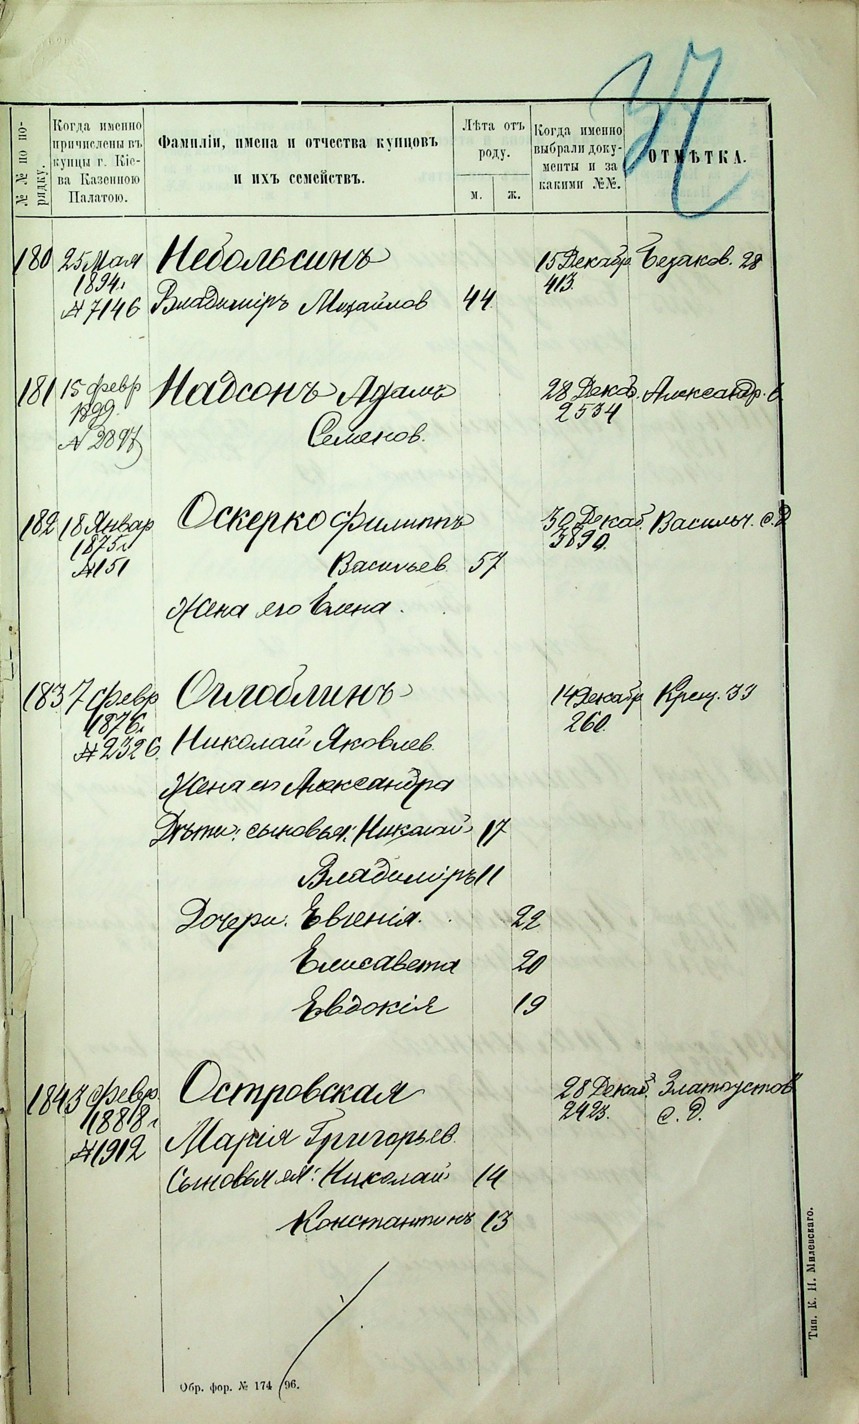 37
№№ по порядку.
Когда именно причислены въ купцы г. Кіева Казенною Палатою.
Фамиліи, имена и отчества купцовъ и ихъ семействъ.
Лѣта отъ роду.
м. ж.
Когда именно выбрали документы и за какими №№.
ОТМѢТКА.
180 25 Мая Небольсинъ 15 Декабр Безаков. 28
1894 г. 413.
№ 7146 Владиміръ Михайлов 44
181 15 февр Надсонъ Адамъ 28 Декаб. Александр. 6
1899. 2534
№ 2897 Семенов.
182 18 Январ Оскерко Филиппъ 30 Декаб. Васильк. с. д
1875 г. 3890.
№ 151 Васильев 57
Жена его Елена.
183 7 февр Оглоблинъ 14 Декабр Крещ. 33
1876 г. 260.
№ 2326 Николай Яковлев.
Жена ег Александра
Дѣти: сыновья: Николай 17
Владиміръ 11
Дочери: Евгенія. 22
Елисавета 20
Евдокія 19
184 3 февр. Островская 28 Декаб. Златоустов
1888 г. 2423. с. д.
№ 1912 Марія Григорьев.
Сыновья ея: Николай 14
Константинъ 13
Обр. фор. № 174 96.
Тип. К. Н. Милевскаго.